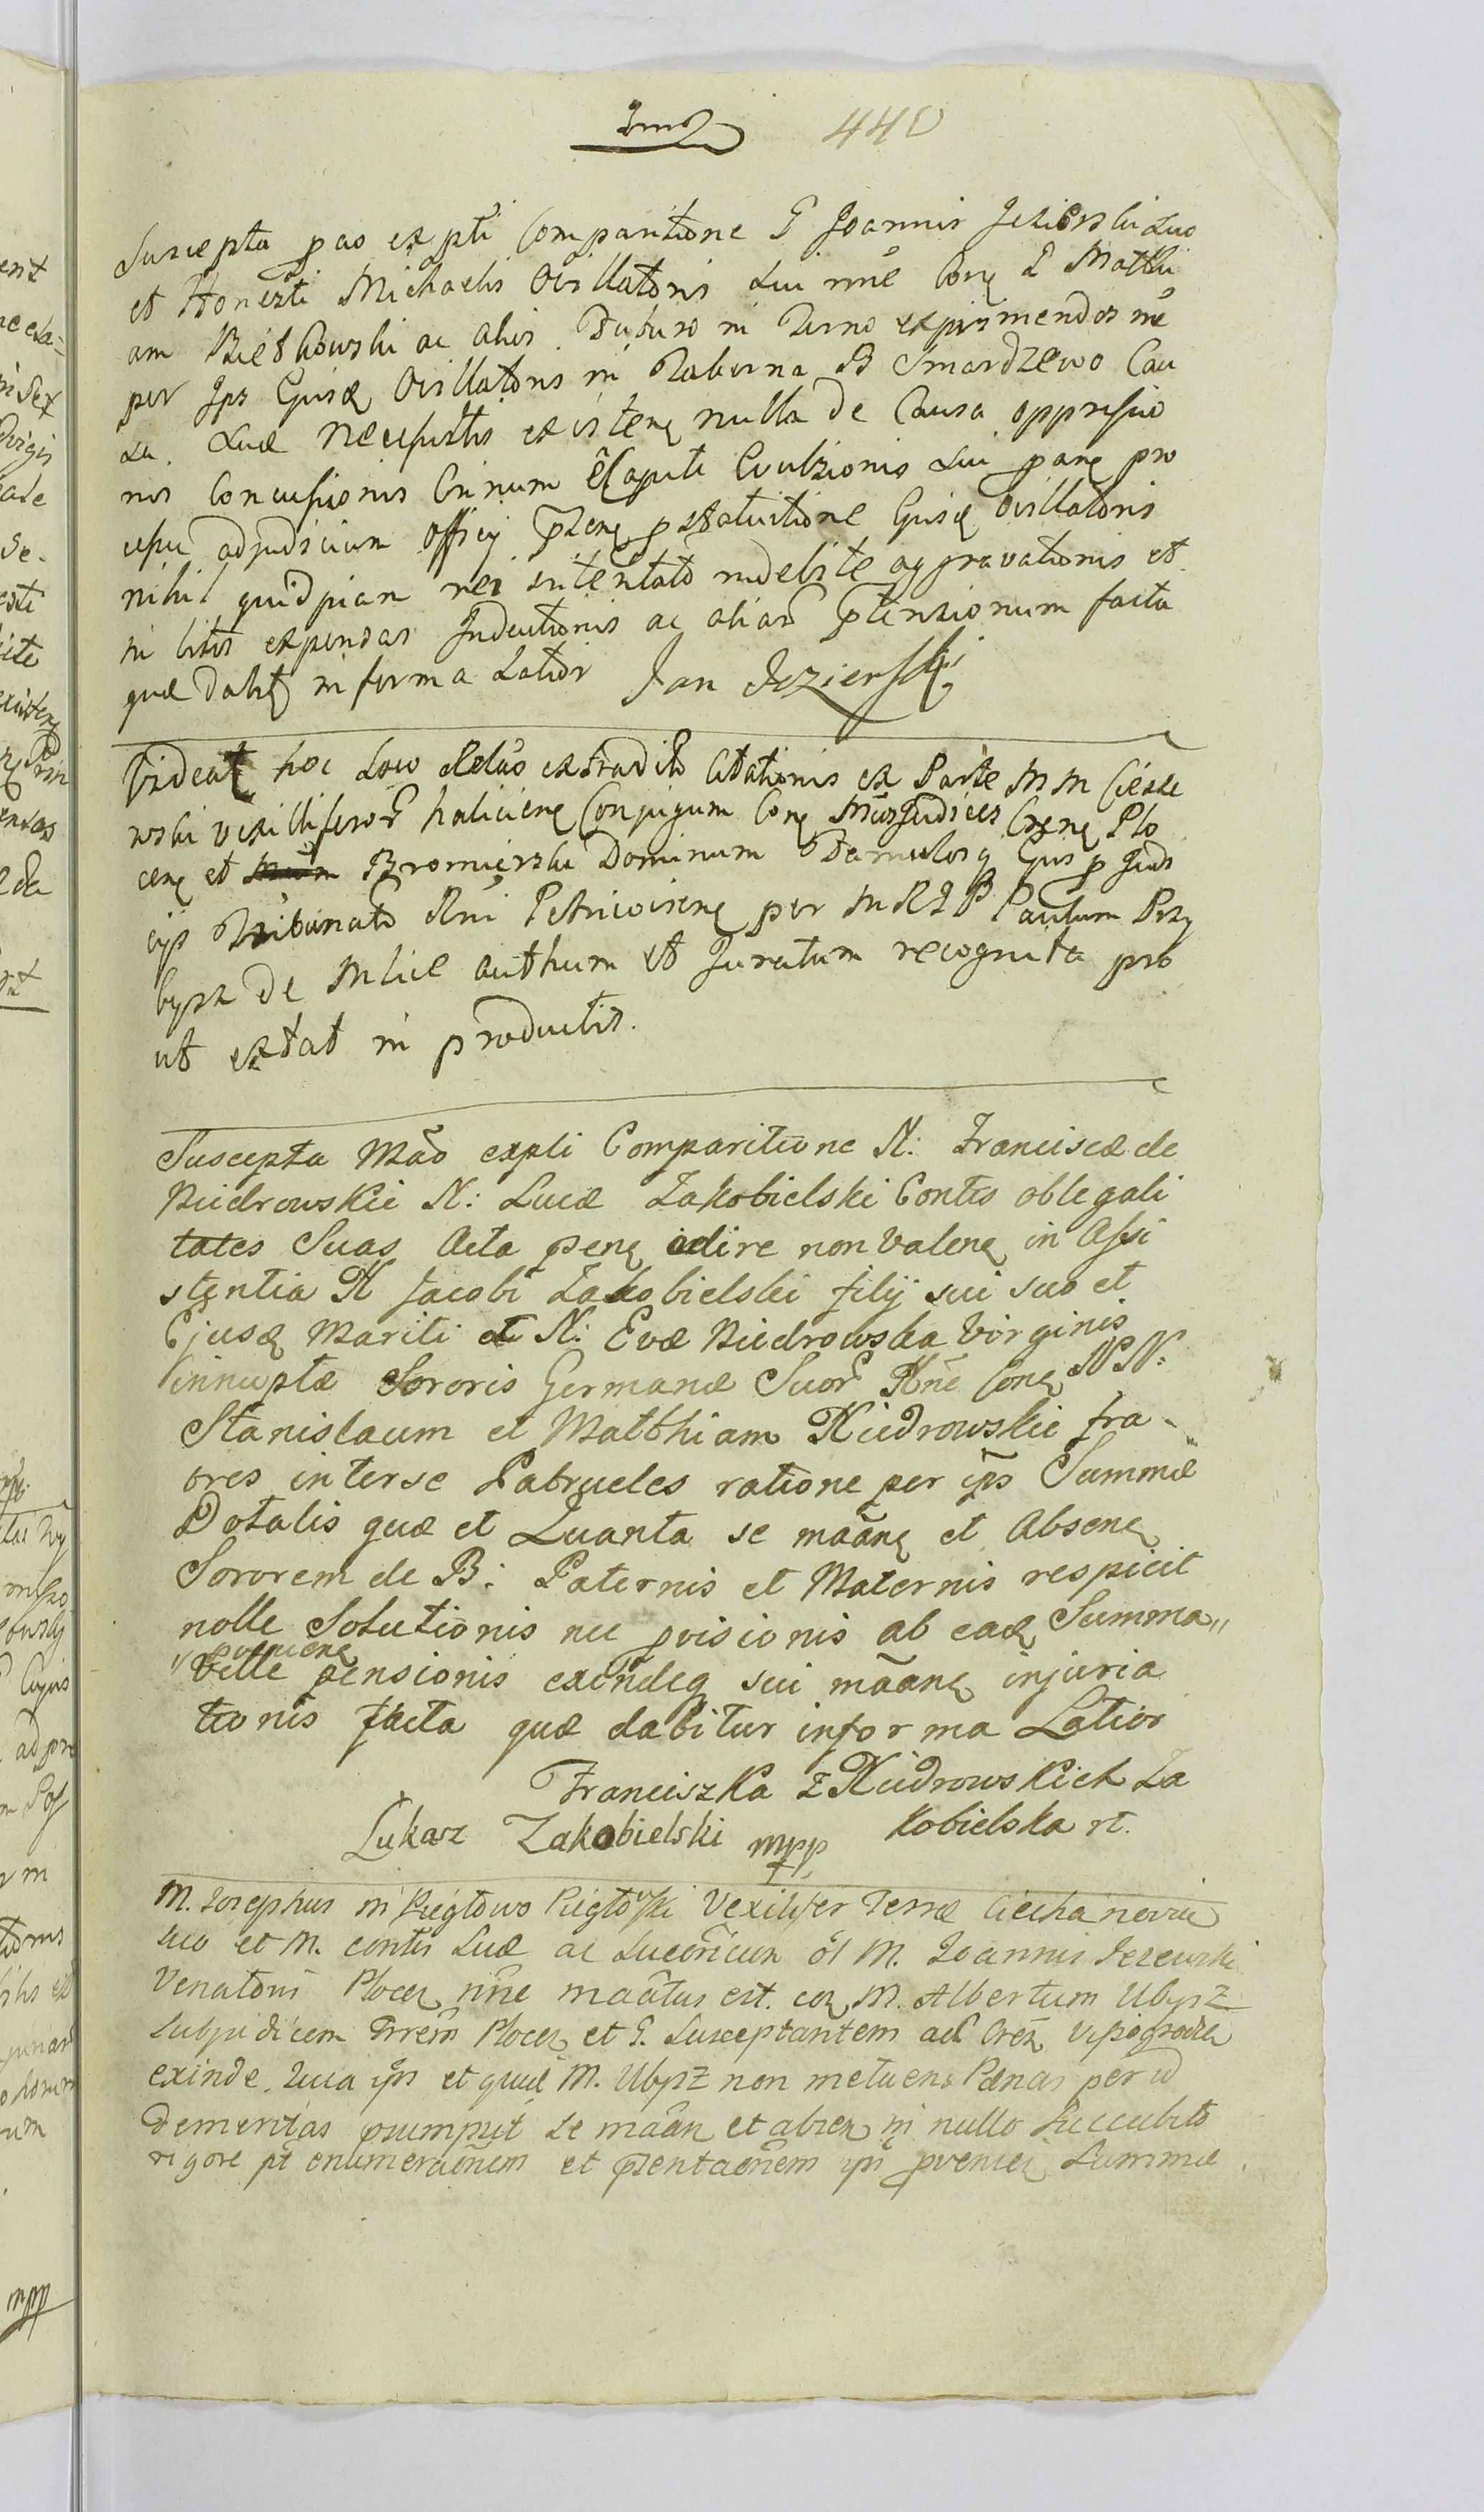 440
Suscepta pao expti Comparitione G Joannis Jezierski Suo
et Honesti Michaelis Ovillatoris Sui nne Conq G Mathi
am Bietkowski ac alios Futuro in Termo exprimendos
per Ips Ejusq Ovillatoris in Taberna B Smardzewo Cau
sa. Suae Necessitis existenq nulla de Causa oppressio
nis Concussionis Crinum e Capite Evulsionis Sui panq pro
cessu ad judicium officij pstatuitione Ejusq Ovillatoris
nihil quidpiam rei intentato indebite aggravationis et
in litis expensas Inductionis ac aliar ptensionum facta
quae dabitq in forma Latior Jan Jezierski
Videatq hoc Loco Relao extradit Citationis ex Parte MM Ciesze
wski vexilliferor haliciens Conjugum Conq Mcos Judices Crenq Plo
cenq et Bromierski Dominum Famulosq Ejus p Judi
cijs Tribunat Rni Petricoviens per MRIP Paulum Przy
bysz de Mlice authum et Juratum recognita pro
ut extat in productis.
Suscepta Mao expti Comparitione N: Franciscae de
Niedrowskie N: Lucae Zakobielski Contis ob legali
tates Suas Acta psenq adire non valenq in Assi
stentia N Jacobi Zakobielski filij sui suo et
Ejusq Mariti et N: Evae Niedrowska Virginis
innuptae Sororis Germanae Suor Nne Conq NN:
Stanislaum et Matthiam Niedrowskie fra-
tres inter se Patrueles ratione per ips Summae
Dotalis quae et Quanta se maanq et Absenq
Sororem de B: Paternis et Maternis respicit
nolle Solutionis nec pvisionis ab eadq Summa
pvenienq
Velle pensionis exindeq sui maanq injuria
tionis facta quae dabitur in forma Latior
Franciszka z Niedrowskich Za
Lukasz Zakobielski mpp kobielska rt.
M. Josephus in Rieglowo Rieglowski Vexilifer Terrae Ciechanovien
suo et M. contis Suae ac Succoricum ol M. Joannis Jezewski
Venatoris Plocen nne maatus est. con M. Albertum Ubysz
Subjudicem Trrem Plocen et G. Susceptantem act Cren
exinde. Quia ips et quia M. Ubysz non metuens Paenas per id
demeritas psumpsit se maan et absen in nullo succubito
rigore pt enumeraonem et psentaonem ipi pvenien Summae